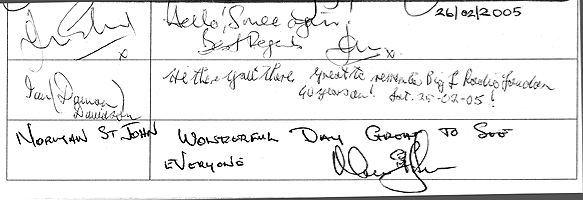 Hello! Once again! 26/02/2005
Best Regards
x
Ian (Damon) Davidson
Hi there y'all there Great to remember Big L Radio London
40 years on! Sat. 25-02-05!
NORMAN ST JOHN WONDERFUL DAY GREAT TO SEE
EVERYONE